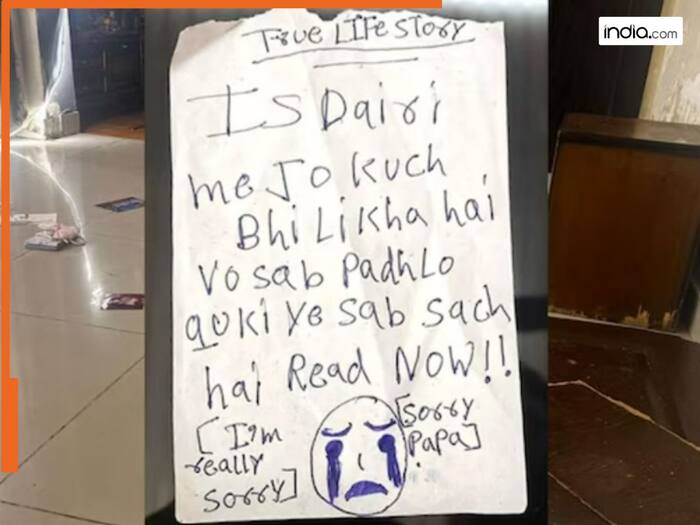 india.com
TRUE LIFE STORY
IS Dairi
me Jo Kuch
Bhi Likha hai
Vo sab Padhlo
quki ye sab sach
hai Read NOW!!
[I'm really sorry]
[Sorry Papa]